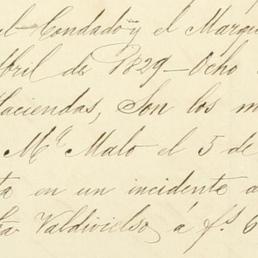 el Condado y el Marqu
Abril de 1829 - Ocho
Haciendas, Son los m
Mª Malo el 5 de
ta en un incidente a
Valdivielso, á fs 6